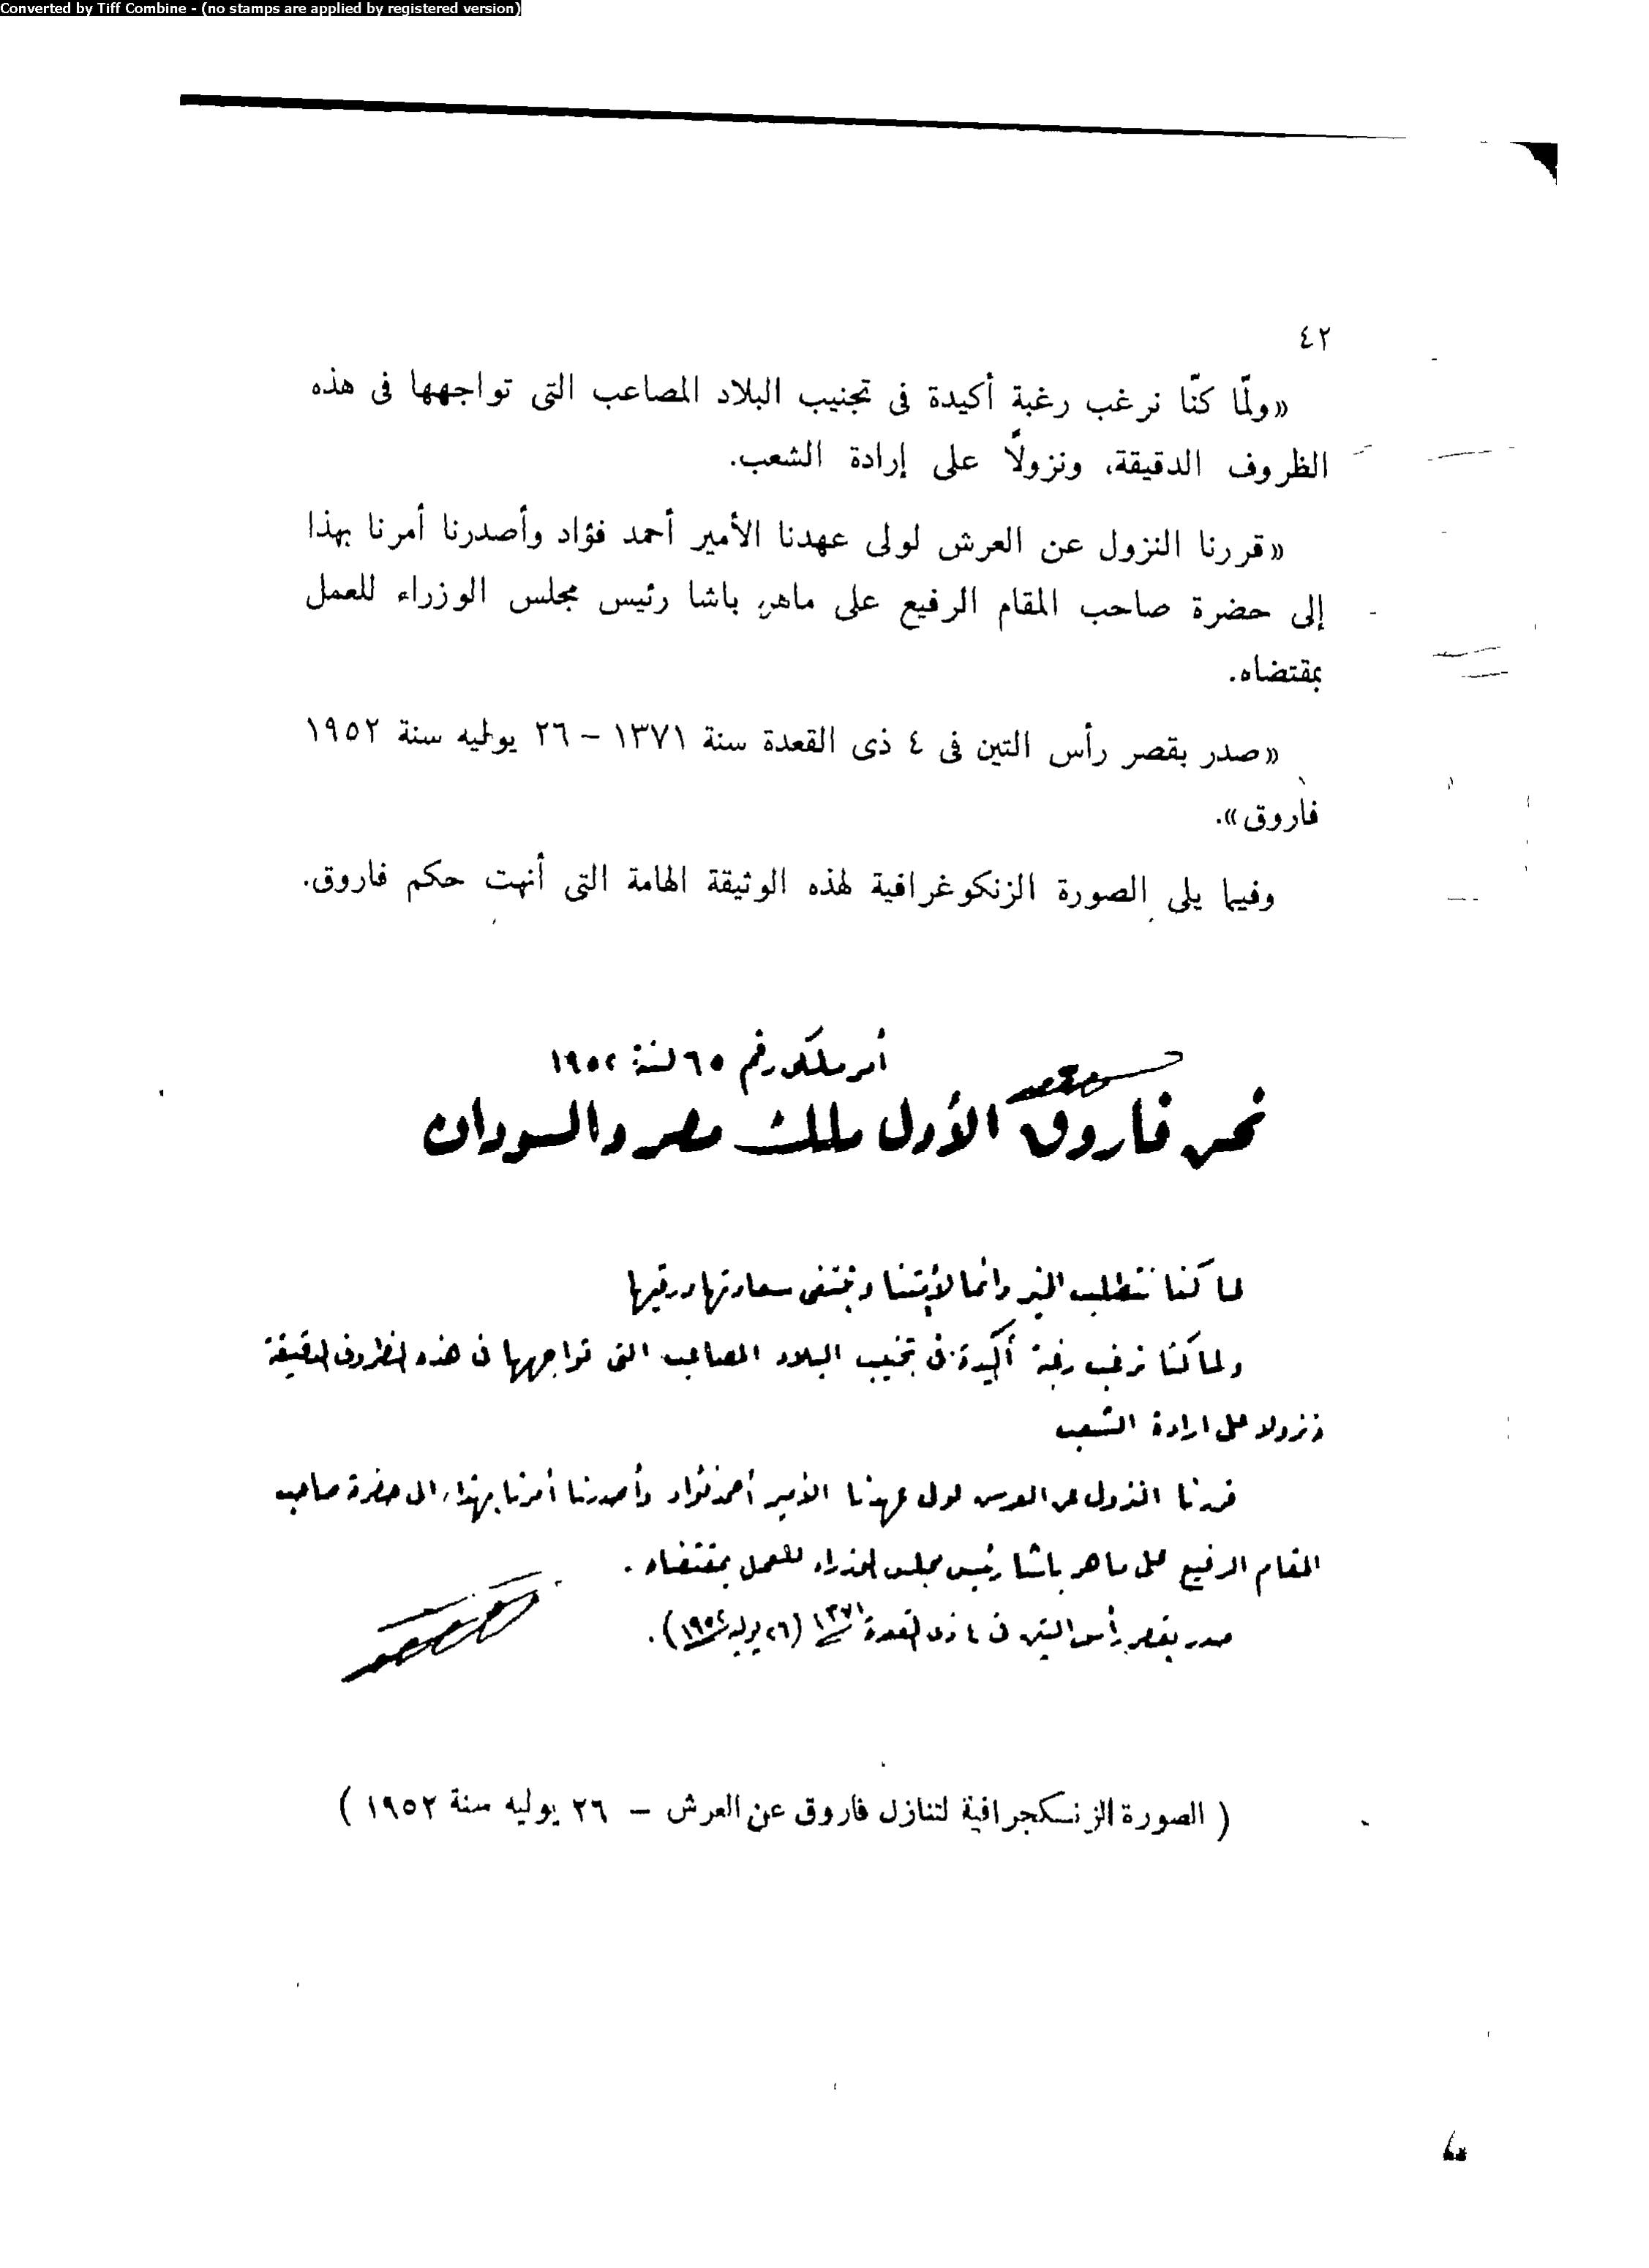 Converted by Tiff Combine - (no stamps are applied by registered version)
٤٢
«ولمّا كنّا نرغب رغبة أكيدة فى تجنيب البلاد المصاعب التى تواجهها فى هذه
الظروف الدقيقة، ونزولاً على إرادة الشعب.
«قررنا النزول عن العرش لولى عهدنا الأمير أحمد فؤاد وأصدرنا أمرنا بهذا
إلى حضرة صاحب المقام الرفيع على ماهر باشا رئيس مجلس الوزراء للعمل
بمقتضاه.
«صدر بقصر رأس التين فى ٤ ذى القعدة سنة ١٣٧١ – ٢٦ يوليه سنة ١٩٥٢
فاروق».
وفيما يلى الصورة الزنكوغرافية لهذه الوثيقة الهامة التى أنهت حكم فاروق.
أمر ملكى رقم ٦٥ لسنة ١٩٥٢
نحن فاروق الأول ملك مصر والسودان
لما كنا نتطلب الخير دائما لأمتنا ونبتغى سعادتها ورقيها
ولما كنا نرغب رغبة أكيدة فى تجنيب البلاد المصاعب التى تواجهها فى هذه الظروف الدقيقة
ونزولا على ارادة الشعب
قررنا النزول عن العرش لولى عهدنا الأمير أحمد فؤاد وأصدرنا أمرنا بهذا الى حضرة صاحب
المقام الرفيع على ماهر باشا رئيس مجلس الوزراء للعمل بمقتضاه .
صدر بقصر رأس التين فى ٤ ذى القعدة ١٣٧١ (٢٦ يوليه ١٩٥٢) .
( الصورة الزنسكجرافية لتنازل فاروق عن العرش – ٢٦ يوليه سنة ١٩٥٢ )